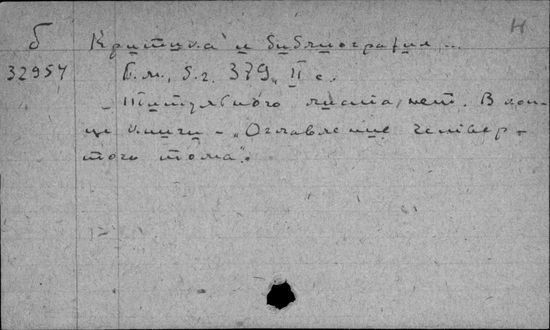 Н
б Критика и библиография...
32957 Б.м., б.г. 379, II с.
Титульного листа нет. В кон-
це книги - „Оглавление четвер-
того тома".